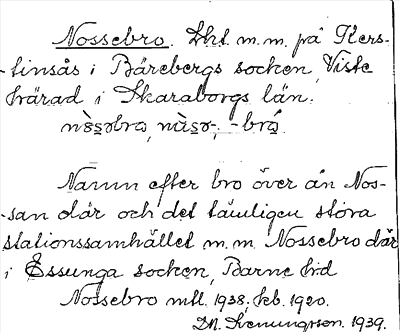 Nossebro. Lht. m.m. på Kers-
-tinsås i Bärebergs socken, Viste
härad i Skaraborgs län.
nòs̱ǝbrǝ, nàsǝ-, -brǻ
Namn efter bro över ån Nos-
-san där och det tämligen stora
stationssamhället m.m. Nossebro där
i Essunga socken, Barne hd
Nossebro mtl. 1938; kb. 1920.
1939.